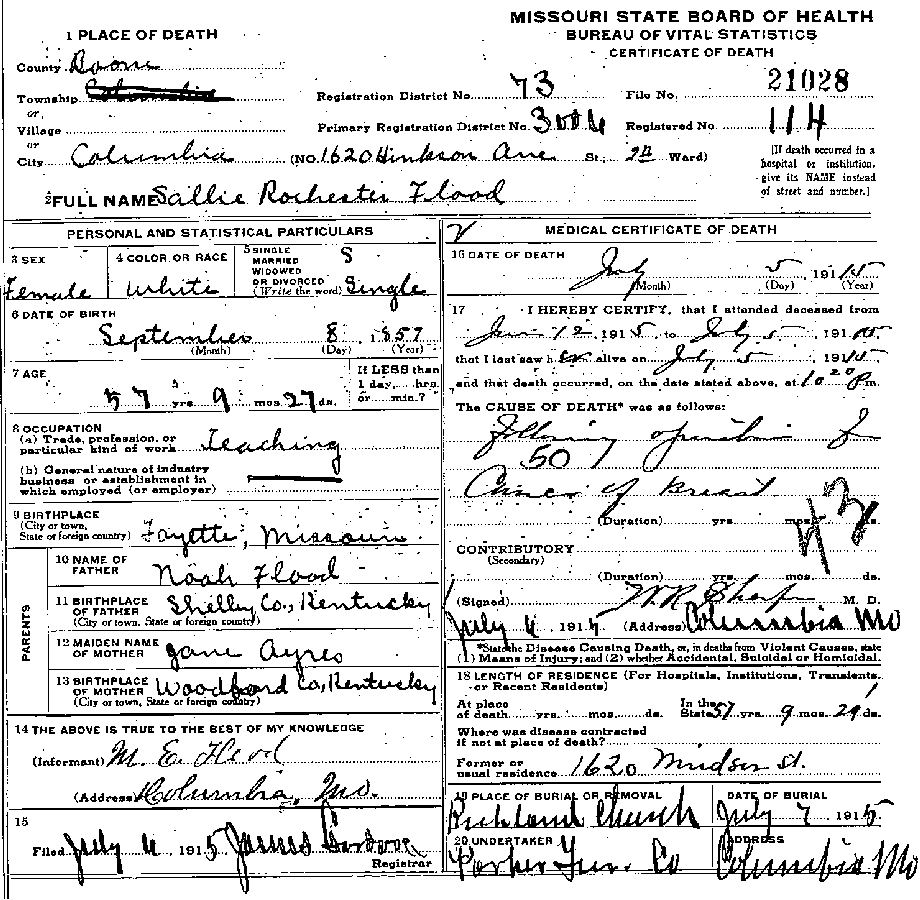 MISSOURI STATE BOARD OF HEALTH
BUREAU OF VITAL STATISTICS
CERTIFICATE OF DEATH
1 PLACE OF DEATH
County Boone
Township
or
Village
or
City Columbia (No. 1620 Hinkson Ave St., 2d Ward)
Registration District No. 73 File No. 21028
Primary Registration District No. 3006 Registered No. 114
[If death occurred in a
hospital or institution,
give its NAME instead
of street and number.]
2 FULL NAME Sallie Rochester Flood
PERSONAL AND STATISTICAL PARTICULARS
3 SEX
Female
4 COLOR OR RACE
White
5 SINGLE
MARRIED
WIDOWED
OR DIVORCED
(Write the word) Single
S
6 DATE OF BIRTH
September 8 1857
(Month) (Day) (Year)
7 AGE
57 yrs. 9 mos. 27 ds.
If LESS than
1 day, hrs.
or min.?
8 OCCUPATION
(a) Trade, profession, or
particular kind of work Teaching
(b) General nature of industry
business or establishment in
which employed (or employer)
9 BIRTHPLACE
(City or town,
State or foreign country) Fayette, Missouri
PARENTS
10 NAME OF
FATHER Noah Flood
11 BIRTHPLACE
OF FATHER Shelby Co., Kentucky
(City or town, State or foreign country)
12 MAIDEN NAME
OF MOTHER Jane Ayres
13 BIRTHPLACE
OF MOTHER Woodford Co, Kentucky
(City or town, State or foreign country)
14 THE ABOVE IS TRUE TO THE BEST OF MY KNOWLEDGE
(Informant) M. E. Flood
(Address) Columbia, Mo.
15
Filed July 6 1915 James Gordon
Registrar
MEDICAL CERTIFICATE OF DEATH
16 DATE OF DEATH
July 5 1915
(Month) (Day) (Year)
17 I HEREBY CERTIFY, that I attended deceased from
June 12 1915 to July 5 1915
that I last saw her alive on July 5 1915
and that death occurred, on the date stated above, at 10 20 P.m.
The CAUSE OF DEATH* was as follows:
following operation for
50
Cancer of Breast
(Duration) yrs. mos. ds.
43
CONTRIBUTORY
(Secondary)
(Duration) yrs. mos. ds.
(Signed) M. D.
July 6 1915 (Address) Columbia Mo
*State the Disease Causing Death, or, in deaths from Violent Causes, state
(1) Means of Injury; and (2) whether Accidental, Suicidal or Homicidal.
18 LENGTH OF RESIDENCE (For Hospitals, Institutions, Transients,
or Recent Residents)
At place
of death yrs. mos. ds.
In the
State 57 yrs. 9 mos. 29 ds.
Where was disease contracted
if not at place of death?
Former or
usual residence 1620 St.
19 PLACE OF BURIAL OR REMOVAL
Richland Church
DATE OF BURIAL
July 7 1915
20 UNDERTAKER
Parker Fur. Co
ADDRESS
Columbia Mo